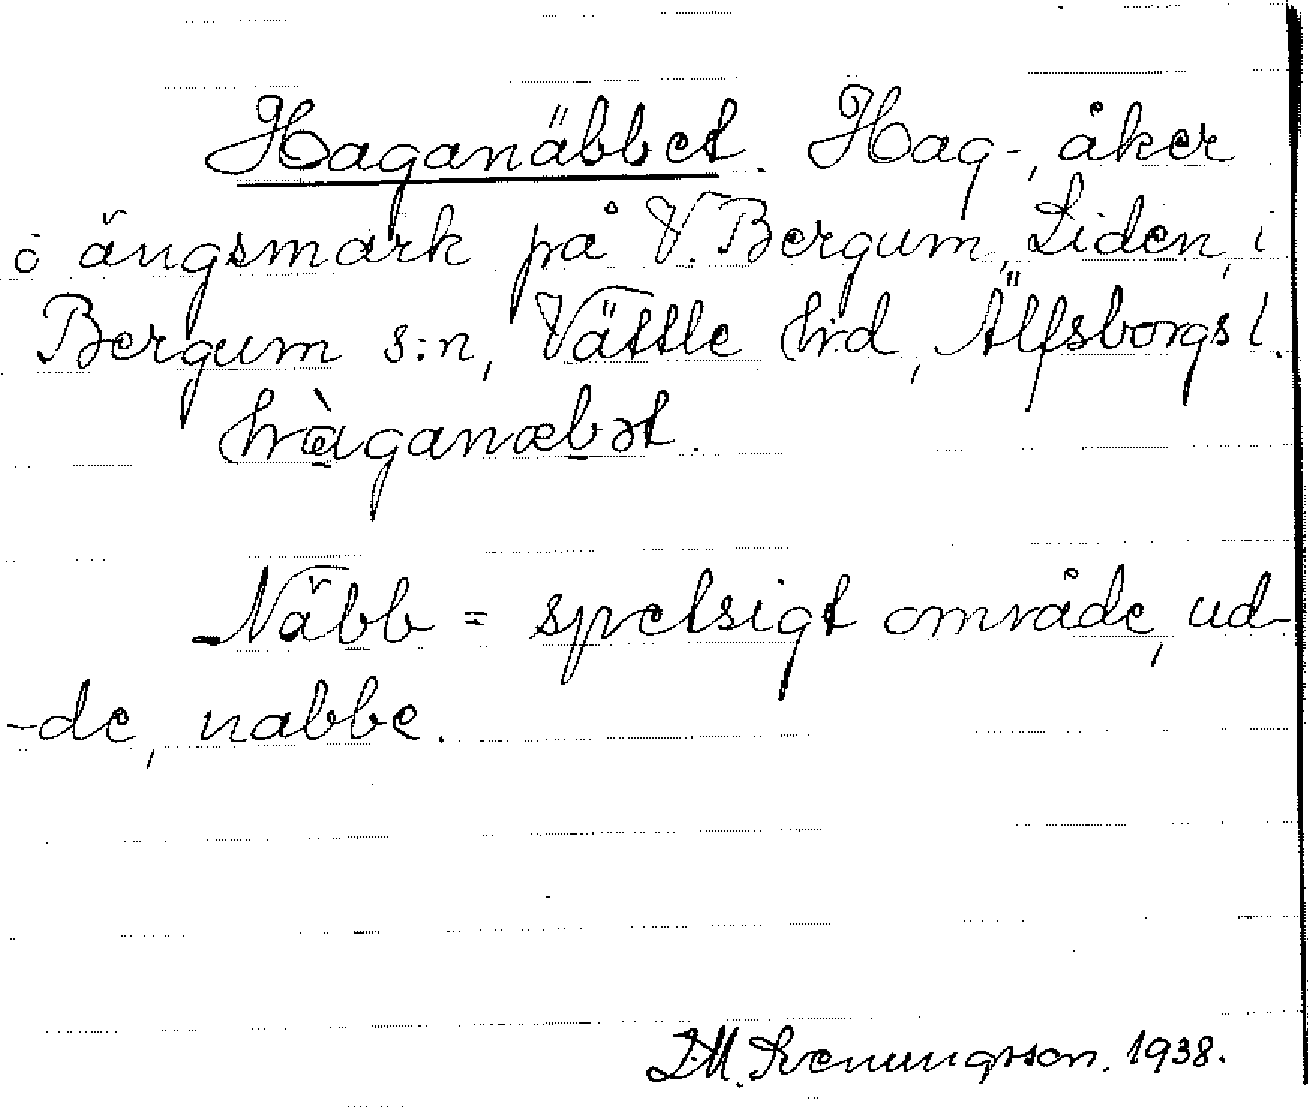 Haganäbbet. Hag-, åker
o ängsmark på V. Bergum, Liden, i
Bergum s:n, Vättle hrd, Älfsborgs l.
hàganæbət.
Näbb = spetsigt område, ud-
-de, nabbe.
D.M. Svenungsson. 1938.